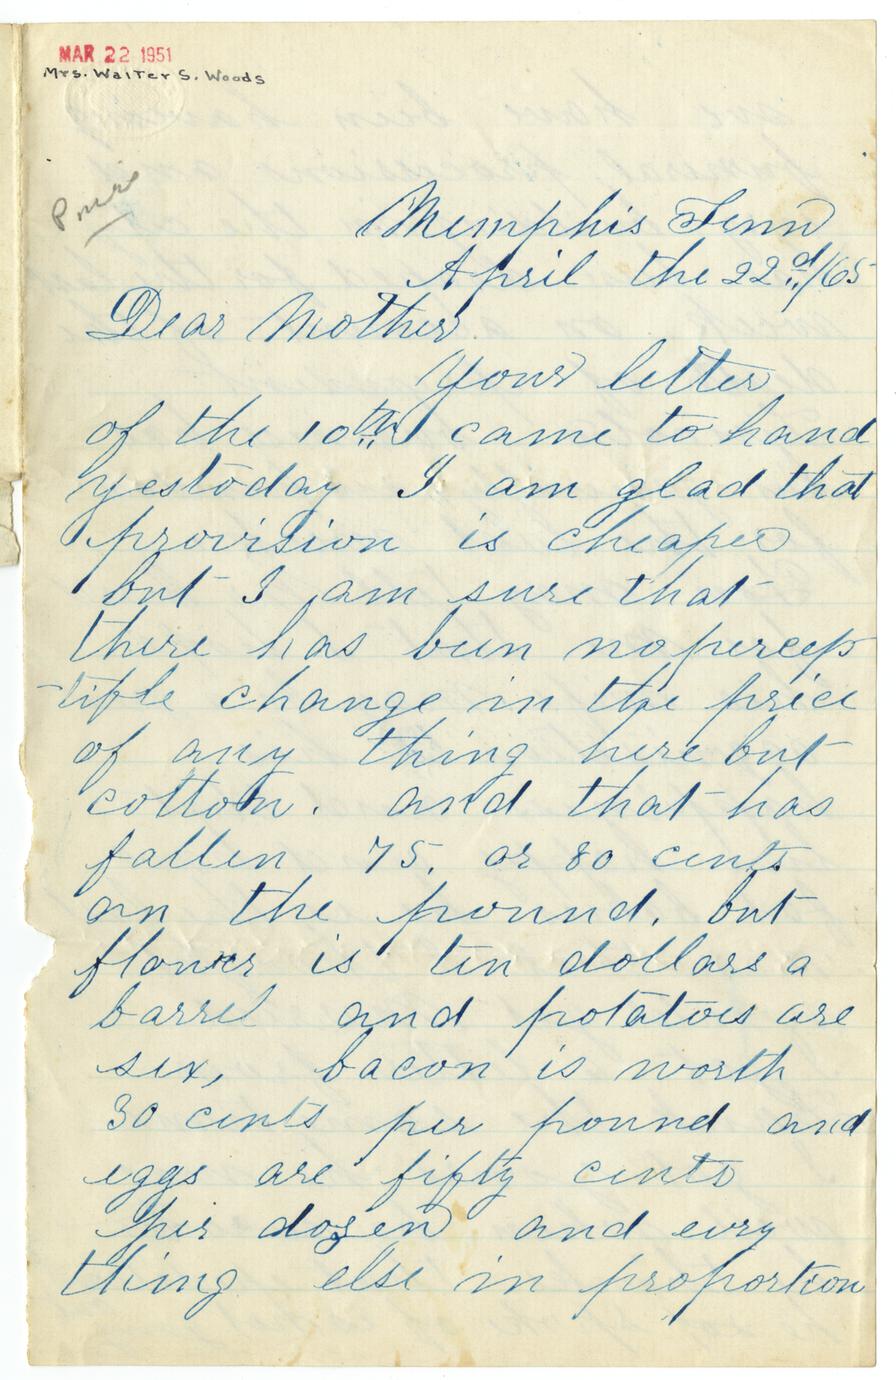 MAR 22 1951
Mrs. Walter S. Woods
Memphis Tenn
April the 22d/65
Dear Mother
Your letter
of the 10th came to hand
yestoday I am glad that
provision is cheaper
but I am sure that
there has been no percep
-tible change in the price
of any thing here but
cotton. and that has
fallen 75. or 80 cents
on the pound. but
flower is ten dollars a
barrel and potatoes are
six, bacon is worth
30 cents per pound and
eggs are fifty cents
per dozen and evry
thing else in proportion